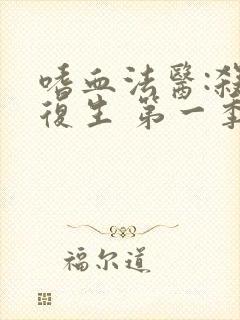 嗜血法醫:殺
復生 第一季
福尔道